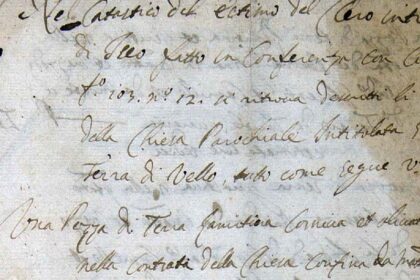 Nel Catastico del estimo del Clero int
di Iseo fatto in Conferenza con
fo 103. no. 12. si ritrova descritti li
della Chiesa Parochiale Intitolata
Terra di Vello tutto come segue
Una Pezza di Terra et olivata
nella Contrata della Chiesa confina da